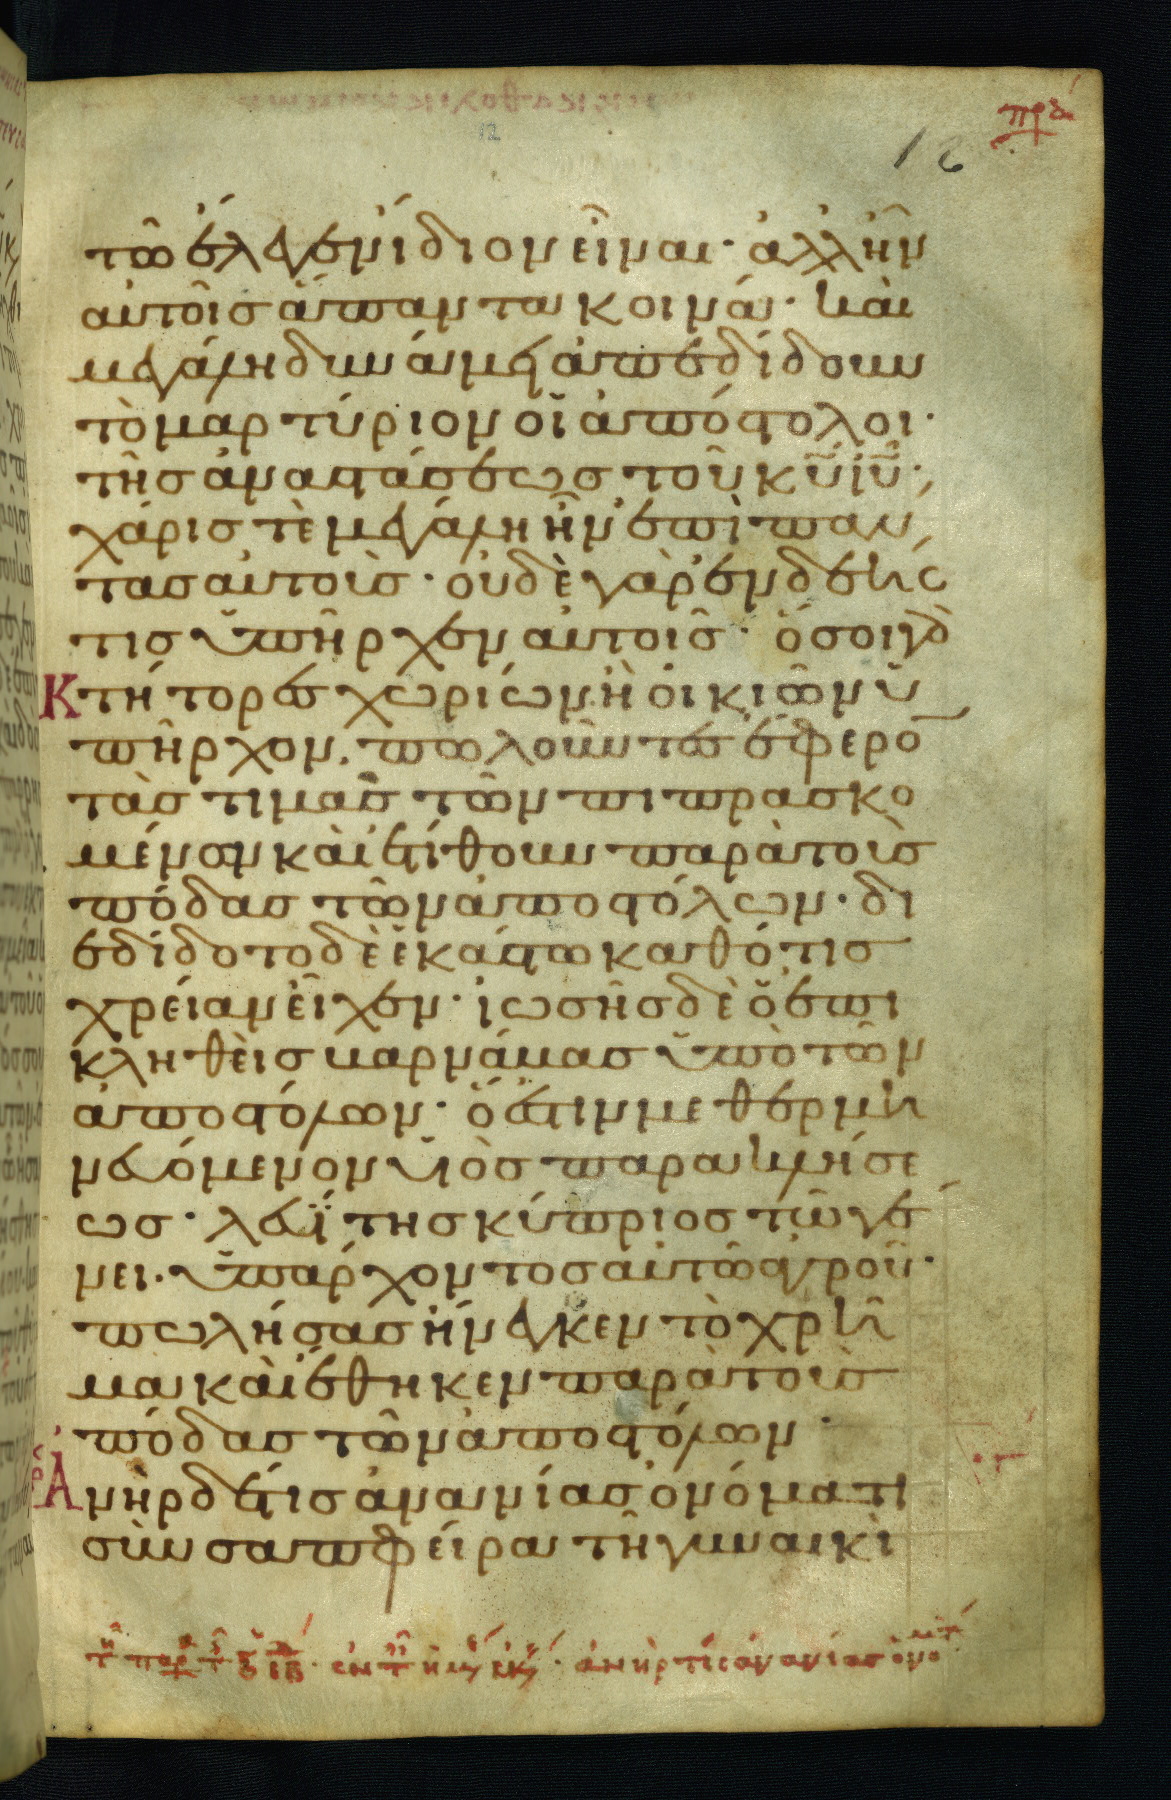 12
12
τῶ ἔλεγεν ἴδιον εἶναι· ἀλλ ἦν
αὐτοῖς ἅπαντα κοινά· καὶ
μεγάλη δυνάμει ἀπεδίδουν
τὸ μαρτύριον οἱ ἀπόστολοι·
τῆς ἀναστάσεως τοῦ κυ ιυ·
χάρις τὲ μεγάλη ἦν ἐπὶ παν
τας αὐτοὺς· οὐδὲ γὰρ ἐνδεής
τις ὑπῆρχεν αὐτοῖς· ὅσοι γὰρ
Κτήτορες χωρίων ἢ οἰκιῶν ὑ
πῆρχον, πωλοῦντες ἔφερον
τὰς τιμὰς τῶν πιπρασκο
μένων καὶ ἐτίθουν παρὰ τοὺς
πόδας τῶν ἀποστόλων· δι
εδίδοτο δὲ ἑκάστω καθότις
χρείαν εἶχεν· ἰωσῆς δὲ ὁ ἐπι
κληθεὶς βαρνάβας ὑπὸ τῶν
ἀποστόλων· ὅ ἐστιν μεθερμη
νευόμενον υἱὸς παρακλήσε
ως· λευΐτης κύπριος τῶ γέ
νει· ὑπάρχοντος αὐτῶ ἀγροῦ·
πωλήσας ἤνεγκεν τὸ χρῆ
μα καὶ ἔθηκεν παρὰ τοὺς
πόδας τῶν ἀποστόλων·
Ἀνὴρ δέ τις ἀνανίας ὀνόματι
σὺν σαπφείρα τῆ γυναικὶ
ἀνήρ τις ἀνανίας ὀνόματι